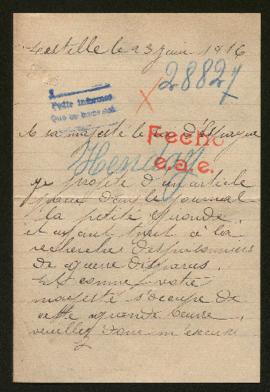 Castelle le 23 juin 1916
28827
X
Pedir informes
A sa majesté le roi d'Espagne
Fecho
Hendaya
e.a.e.
je profite d'un article
placé dans le journal
la petite Gironde
et ayant trait à la
recherche des prisonniers
de guerre disparus.
Et comme votre
majesté s'occupe de
cette grande œuvre,
veuillez donc m'excuse